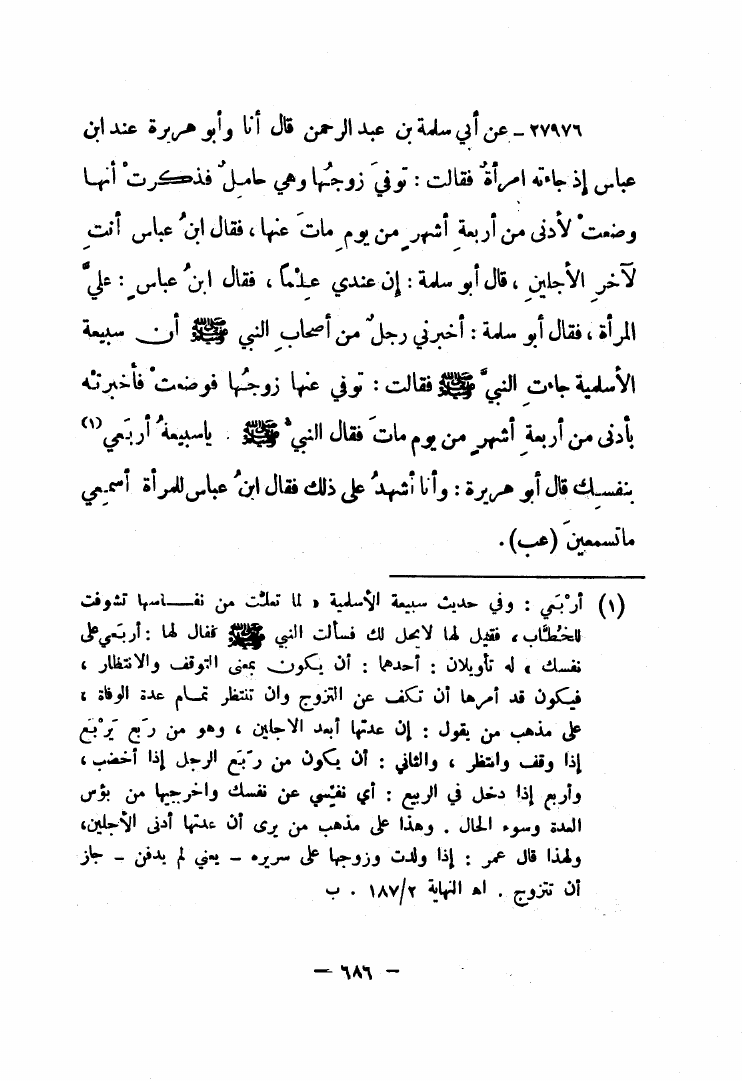 ٢٧٩٧٦ - عن أبي سلمة بن عبد الرحمن قال أنا وأبو هريرة عند ابن
عباس إذ جاءته امرأةٌ فقالت : توفيَ زوجُها وهي حاملٌ فذكرتْ أنها
وضعتْ لأدنى من أربعةِ أشهرٍ من يومِ ماتَ عنها ، فقال ابنُ عباس أنتِ
لآخرِ الأجلينِ ، قال أبو سلمة : إن عندي علماً ، فقال ابنُ عباسٍ : عليَّ
المرأة ، فقال أبو سلمة : أخبرني رجلٌ من أصحابِ النبي ﷺ أن سبيعة
الأسلمية جاءتِ النبيَّ ﷺ فقالت : توفي عنها زوجُها فوضعتْ فأخبرتْه
بأدنى من أربعةِ أشهرٍ من يوم ماتَ فقال النبيُّ ﷺ . ياسبيعةُ أربَعي (١)
بنفسِك قال أبو هريرة : وأنا أشهدُ على ذلك فقال ابنُ عباس للمرأة أسمعي
ماتسمعينَ (عب) .
(١) أرْبَعي : وفي حديث سبيعة الأسلمية « لما تعلت من نفاسها تشوفت
للخُطَّاب ، فقيل لها لايحل لك فسألت النبي ﷺ فقال لها : أربَعي على
نفسك » له تأويلان : أحدهما : أن يكون بمعنى التوقف والانتظار ،
فيكون قد أمرها أن تكف عن التزوج وان تنتظر تمام عدة الوفاة ،
على مذهب من يقول : إن عدتها أبعد الاجلين ، وهو من رَبَع يَرْبَع
إذا وقف وانتظر ، والثاني : أن يكون من رَبَع الرجل إذا أخضب ،
وأربع إذا دخل في الربيع : أي نفِّسي عن نفسك واخرجيها من بؤس
العدة وسوء الحال . وهذا على مذهب من يرى أن عدتها أدنى الأجلين،
ولهذا قال عمر : إذا ولدت وزوجها على سريره - يعني لم يدفن - جاز
أن تتزوج . اه النهاية ١٨٧/٢ . ب
- ٦٨٦ -